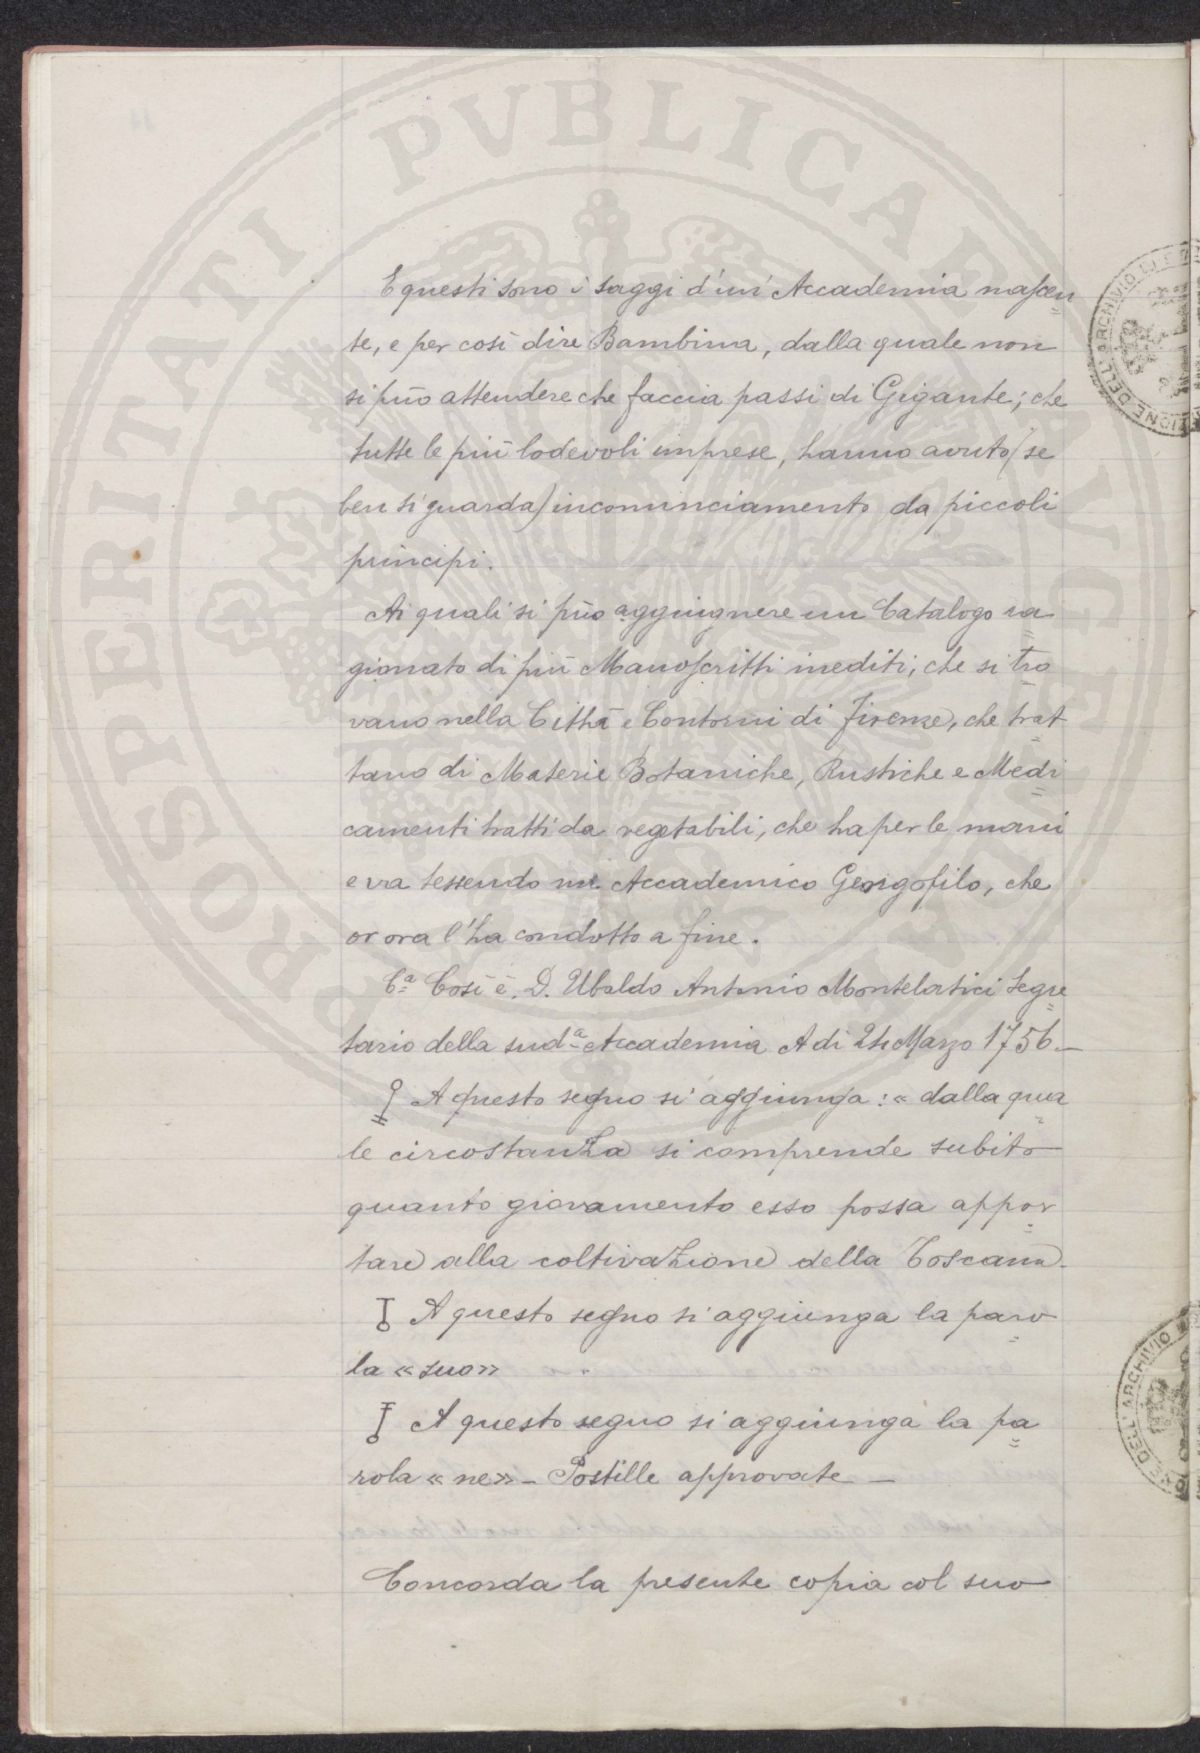 E questi sono i saggi d'un'Accademia nascen
te, e per così dire Bambina, dalla quale non
si può attendere che faccia passi di Gigante; che
tutte le più lodevoli imprese, hanno avuto (se
ben si guarda) incominciamento da piccoli
principi.
Ai quali si può aggiugnere un Catalogo ra
gionato di più Manoscritti inediti, che si tro
vano nella Città e Contorni di Firenze, che trat
tano di Materie Botaniche, Rustiche e Medi
camenti tratti da vegetabili, che ha per le mani
e va tessendo un Accademico Georgofilo, che
or ora l'ha condotto a fine.
Cª Così è. D. Ubaldo Antonio Montelatici Segre
tario della sudª Accademia A di 24 Marzo 1756 —
A questo segno si aggiunga: « dalla qua
le circostanza si comprende subito
quanto giovamento esso possa appor
tare alla coltivazione della Toscana.
A questo segno si aggiunga la paro
la « suo »
A questo segno si aggiunga la pa
rola « ne » — Postille approvate —
Concorda la presente copia col suo
PROSPERITATI PVBLICAE AVGENDAE
DELL'ARCHIVIO
DELL'ARCHIVIO